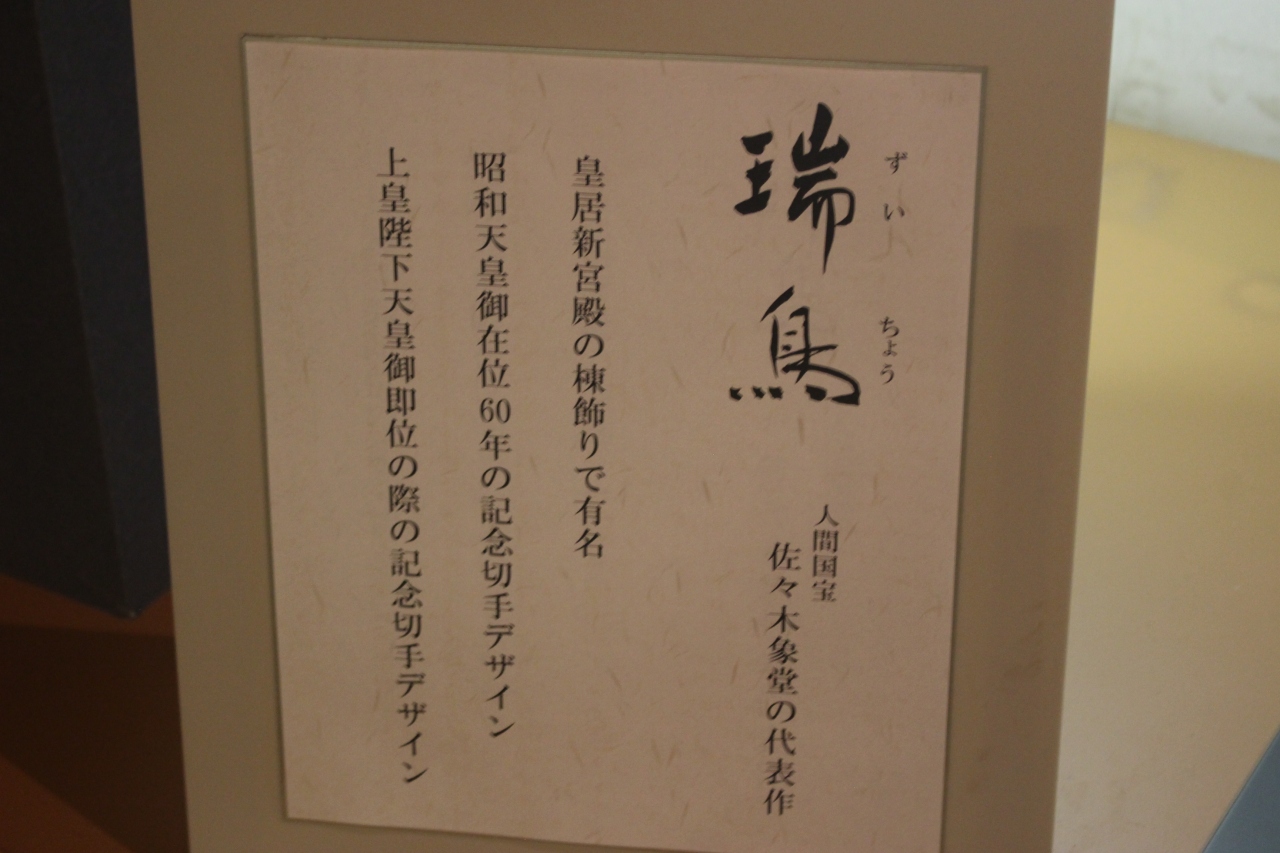 ずいちょう
瑞鳥
人間国宝
佐々木象堂の代表作
皇居新宮殿の棟飾りで有名
昭和天皇御在位60年の記念切手デザイン
上皇陛下天皇御即位の際の記念切手デザイン